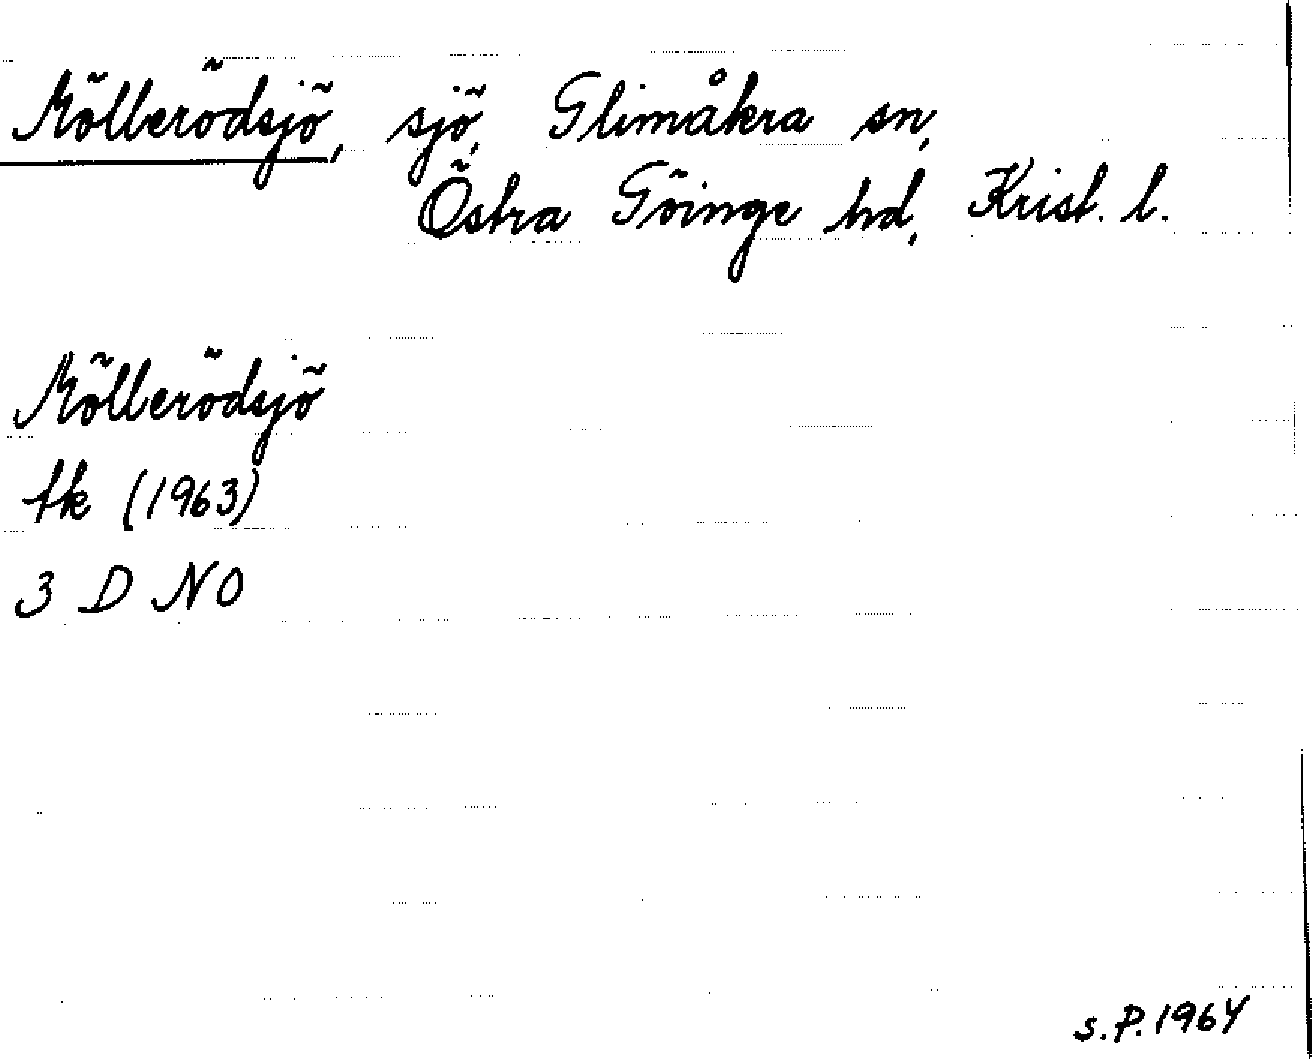 Möllerödsjö, sjö, Glimåkra sn,
Östra Göinge hd, Krist. l.
Möllerödsjö
tk (1963)
3 D NO
S.P. 1964